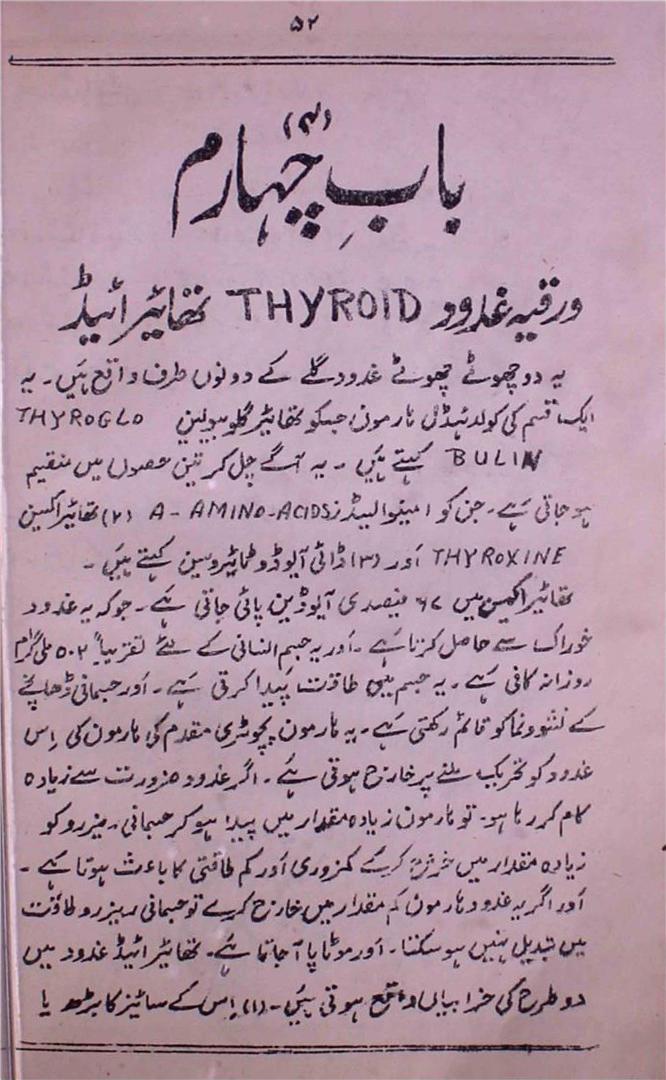 ۵۲
(۴)
بابِ چہارم
ورقیہ غدود THYROID تھائیرائیڈ
یہ دو چھوٹے چھوٹے غدود گلے کے دونوں طرف واقع ہیں ۔ یہ
ایک قسم کی کولائیڈل ہارمون جسکو تھائیر گلوبولین THYROGLO
BULIN کہتے ہیں ۔ یہ آگے چل کر تین حصوں میں منقیم
ہو جاتی ہے ۔ جن کو امینو ایسڈز A - AMINO-ACIDS (۲) تھائیراکسین
THYROXINE اور (۳) ڈائی آیوڈو ٹھائیروسین کہتے ہیں ۔
تھائیراکسین میں ۶۷ فیصدی آیوڈین پائی جاتی ہے ۔ جو کہ یہ غدود
خوراک سے حاصل کرتا ہے ۔ اور یہ جسم انسانی کے لئے تقریباً ۵۰۲ ملی گرام
روزانہ کافی ہے ۔ یہ جسم میں طاقت پیدا کرتی ہے ۔ اور جسمانی ڈھانچے
کے نشوونما کو قائم رکھتی ہے ۔ یہ ہارمون پچوٹری مقدم کی ہارمون کی اِس
غدود کو تحریک ملنے پر خارج ہوتی ہے ۔ اگر غدود ضرورت سے زیادہ
کام کر رہا ہو ۔ تو ہارمون زیادہ مقدار میں پیدا ہو کر جسمانی ریزرو کو
زیادہ مقدار میں خرچ کر کے کمزوری اور کم طاقتی کا باعث ہوتا ہے ۔
اور اگر یہ غدود ہارمون کم مقدار میں خارج کرے تو جسمانی ریزرو طاقت
میں تبدیل نہیں ہو سکتا ۔ اور موٹاپا آجاتا ہے ۔ تھائیرائیڈ غدود میں
دو طرح کی خرابیاں واقع ہوتی ہیں ۔ (۱) اِس کے سائیز کا بڑھ یا